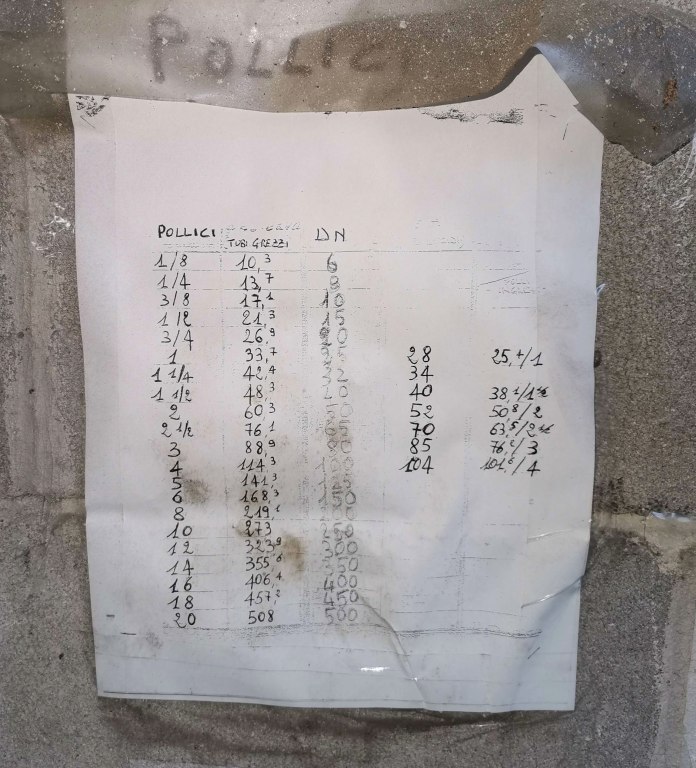 POLLICI
POLLICI TUBI GREZZI DN
1/8 10,3 6
1/4 13,7 8
3/8 17,1 10
1/2 21,3 15
3/4 26,9
1 33,7 28 25,4/1
1 1/4 42,4 34
1 1/2 48,3 40 38,1/1 1/2
2 60,3 52 50,8/2
2 1/2 76,1 70 63,5/2 1/2
3 88,9 85 76,2/3
4 114,3 104 101,6/4
5 141,3
6 168,3
8 219,1
10 273
12 323,9 300
14 355,6
16 406,4 400
18 457,2 450
20 508 500